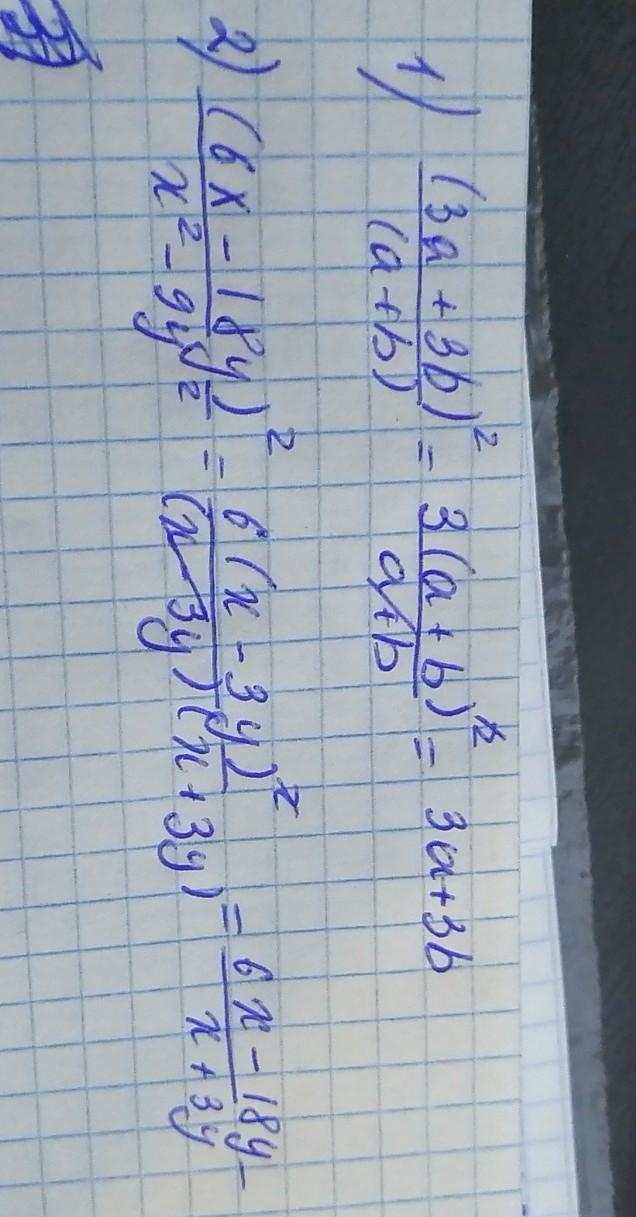 1) (3a + 3b)² / (a + b) = 3(a + b)² / a + b = 3a + 3b
2) (6x - 18y)² / x² - 9y² = 6(x - 3y)² / (x - 3y)(x + 3y) = 6x - 18y / x + 3y